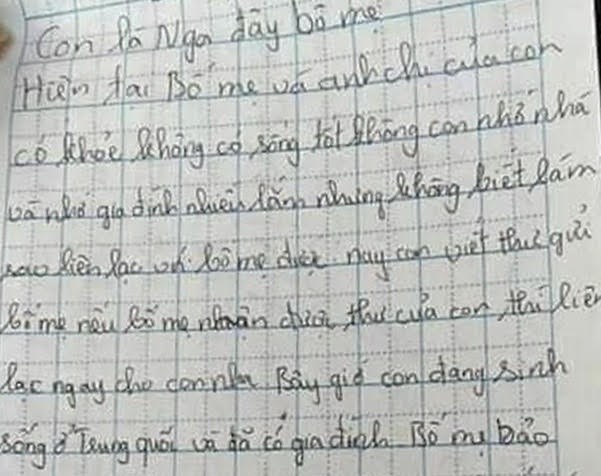 Con là Nga đây bố mẹ
Hiện tại Bố mẹ và anh chị của con
có khỏe không có sống tốt không con nhớ nhà
và nhớ gia đình nhiều lắm nhưng không biết làm
sao liên lạc với bố mẹ được nay con viết thư gửi
bố mẹ nếu bố mẹ nhận được thư của con thì liên
lạc ngay cho con nha Bây giờ con đang sinh
sống ở Trung quốc và đã có gia đình Bố mẹ bảo